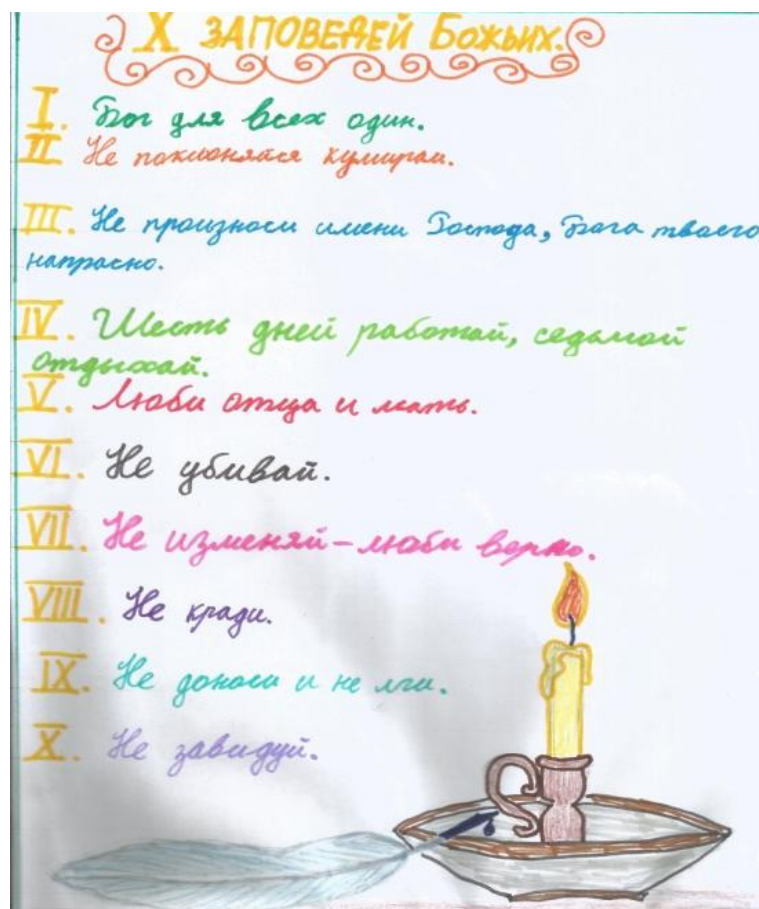 X ЗАПОВЕДЕЙ БОЖЬИХ.
I. Бог для всех один.
II. Не поклоняйся кумирам.
III. Не произноси имени Господа, Бога твоего,
напрасно.
IV. Шесть дней работай, седьмой
отдыхай.
V. Люби отца и мать.
VI. Не убивай.
VII. Не изменяй – люби верно.
VIII. Не кради.
IX. Не доноси и не лги.
X. Не завидуй.